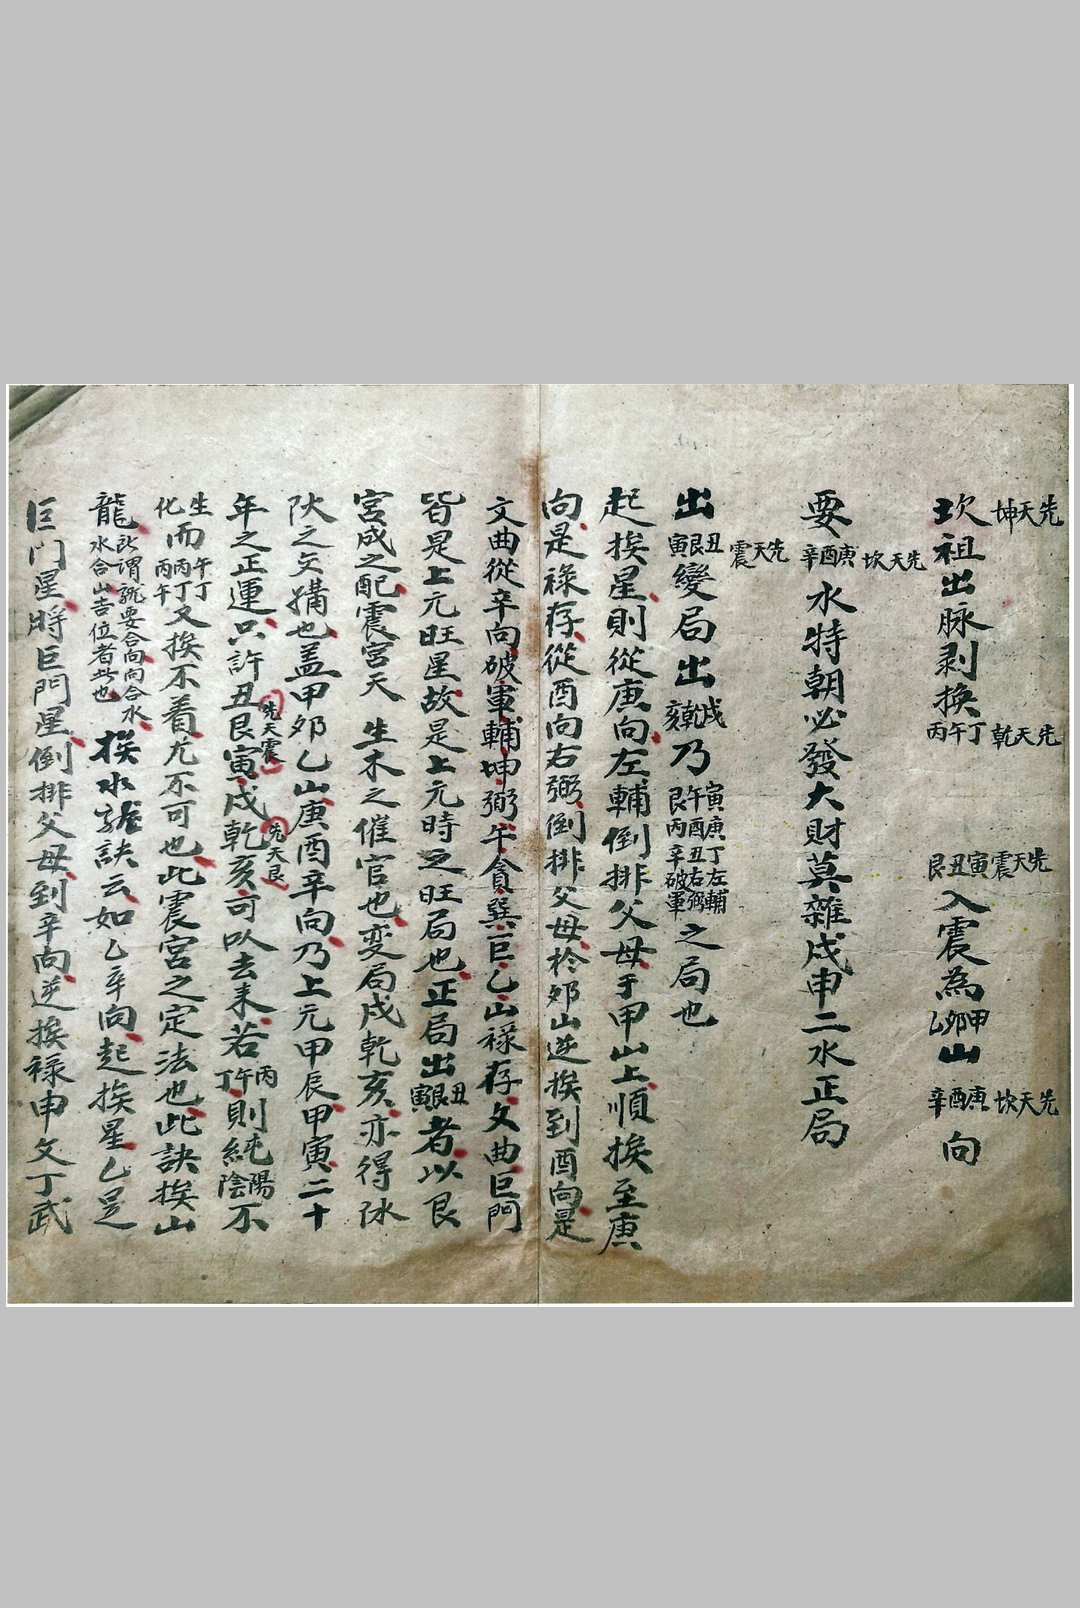 先天坤
先天乾
先天震
先天坎
坎祖出脉剥换丙午丁艮丑寅入震為甲夘乙山辛酉庚向
先天坎
要辛酉庚水特朝必發大財莫雜戌申二水正局
先天震
出丑艮寅變局出戌乾亥乃寅庚丁左輔午酉丑右弼艮丙辛破軍之局也
起挨星則從庚向左輔倒排父母于甲山上順挨至庚
向是祿存從酉向右弼倒排父母於夘山逆挨到酉向是
文曲從辛向破軍輔坤弼午貪巽巨乙山祿存文曲巨門
皆是上元旺星故是上元時之旺局也正局出丑艮寅者以艮
宮成之配震宮天生木之催官也变局戌乾亥亦得
之交媾也盖甲夘乙山庚酉辛向乃上元甲辰甲寅二十
年之正運只許丑艮寅戌乾亥可以去來若丙午丁則純陽陰不
先天震
先天艮
生化而午丁丙丁丙午又挨不着尤不可也此震宮之定法也此訣挨山
龍所謂龍要合向向合水水合山吉位者此也挨水訣云如乙辛向起挨星乙是
巨门星將巨門星倒排父母到辛向逆挨祿申文丁武